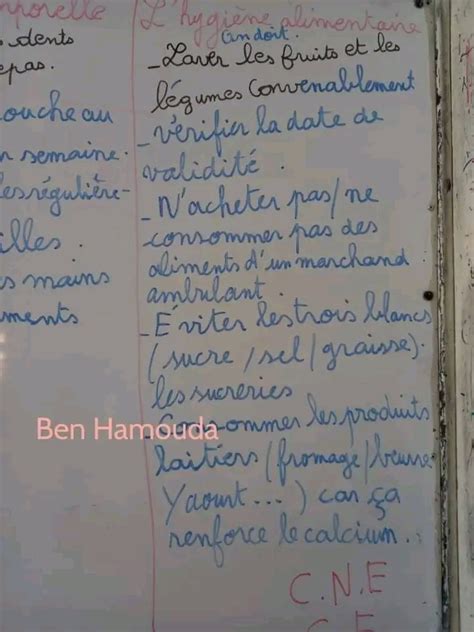 porelle
dents
epas.
ouche au
n semaine.
les régulière-
illes.
s mains
ments
L'hygiène alimentaire
on doit.
- Laver les fruits et les
légumes convenablement
- Vérifier la date de
validité.
- N'acheter pas/ne
consommer pas des
aliments d'un marchand
ambulant.
- Éviter les trois blancs
(sucre/sel/graisse).
les sucreries
- Consommer les produits
laitiers (fromage/beurre
Yaourt...) car ça
renforce le calcium.
C.N.E
Ben Hamouda